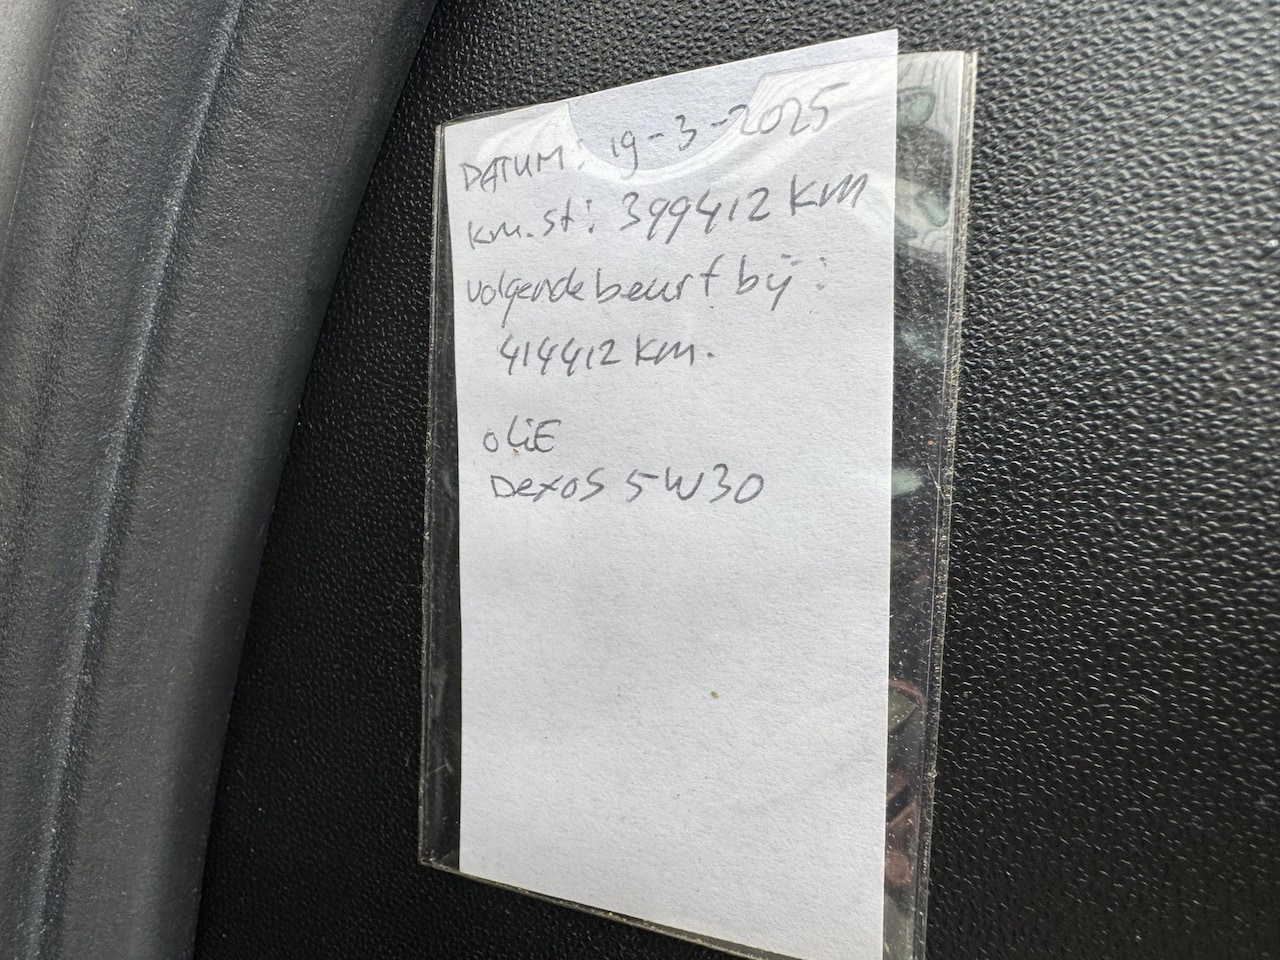 DATUM: 19-3-2025
km.st: 399412 KM
volgende beurt bij:
414412 KM.
OLiE
Dexos 5W30